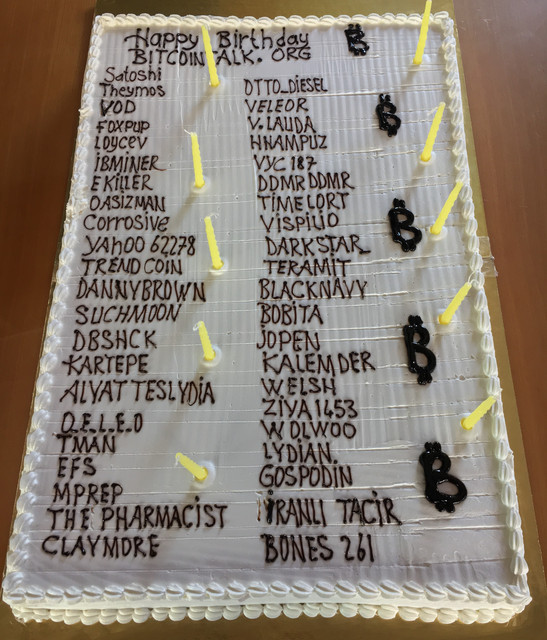 Happy Birthday
BITCOINTALK.ORG
Satoshi
Theymos
VOD
FOXPUP
LOYCEV
İBMINER
EKİLLER
OASIZMAN
Corrosive
YAHOO 62278
TREND COIN
DANNYBROWN
SUCHMOON
DBSHCK
KARTEPE
ALYATTESLYDİA
O.E.L.E.O
TMAN
EFS
MPREP
THE PHARMACİST
CLAYMORE
OTTO_DİESEL
VELEOR
V.LAUDA
HNAMPUZ
VYC 187
DDMRDDMR
TIMELORT
VISPILIO
DARKSTAR_
TERAMIT
BLACKNAVY
BOBİTA
JOPEN
KALEMDER
WELSH
ZİYA1453
WOLWOO
LYDİAN.
GOSPODIN
İRANLI TACİR
BONES 261